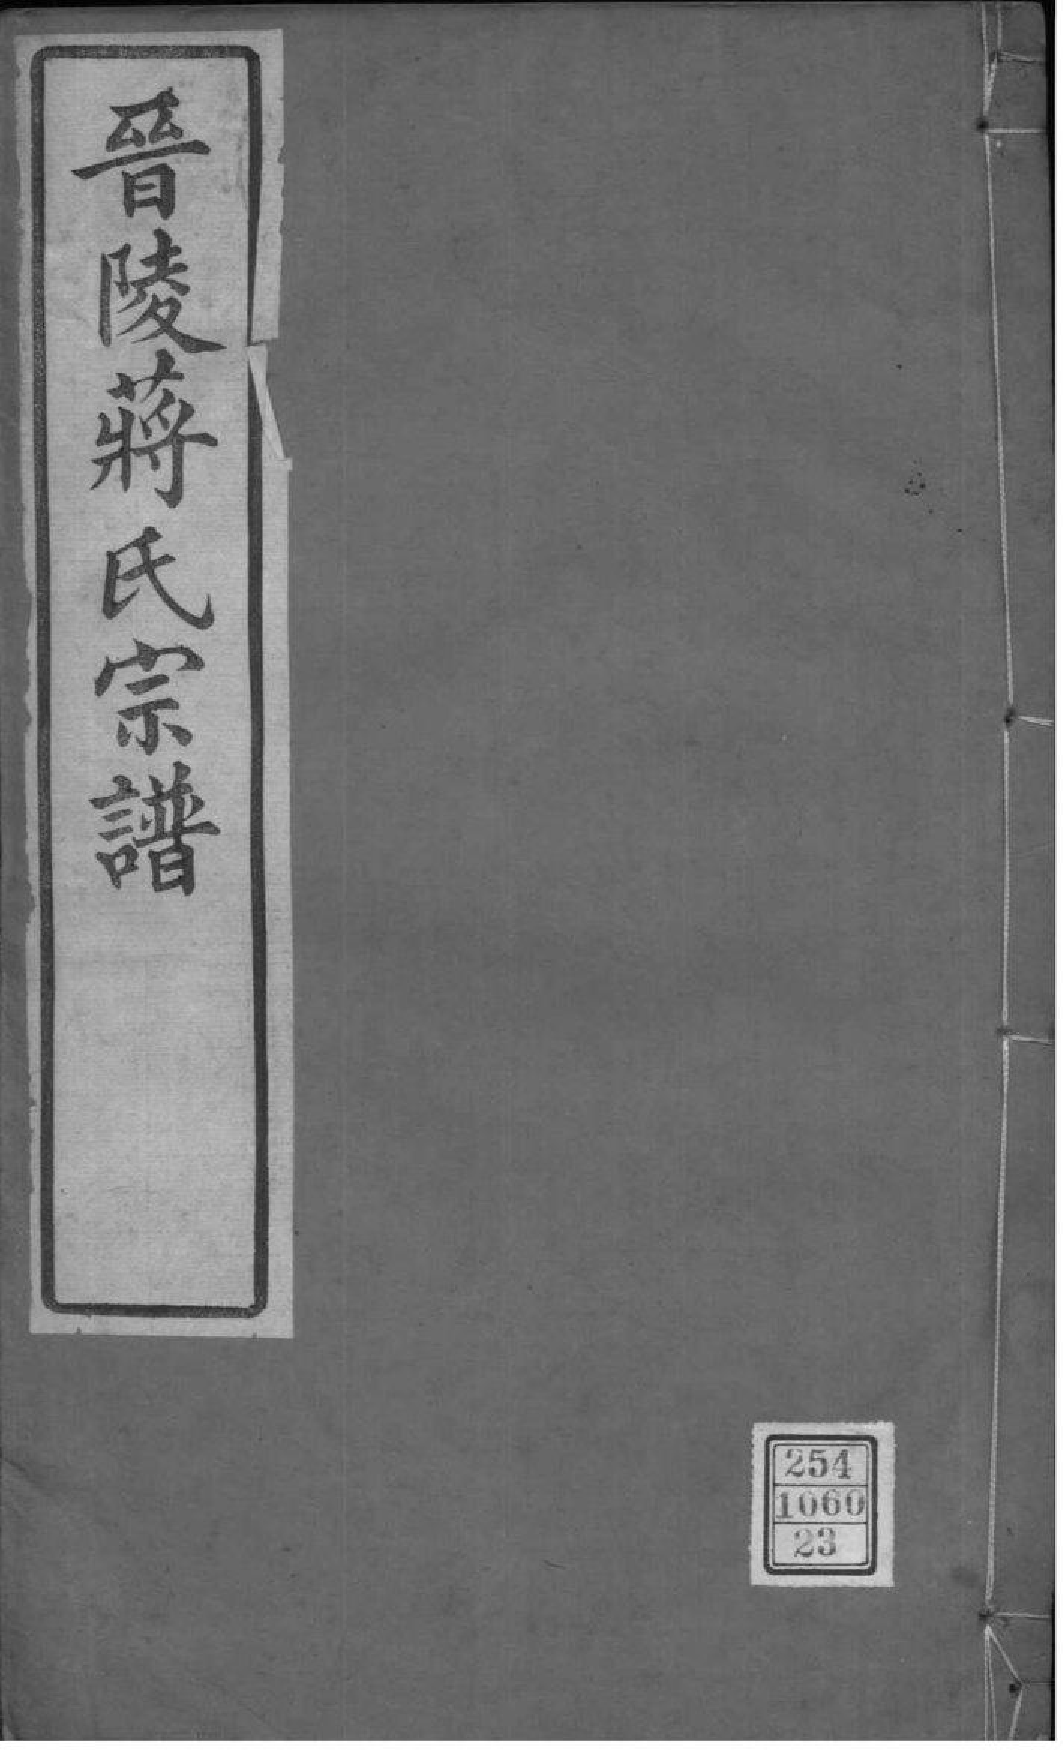 晉陵蔣氏宗譜
254
1060
23